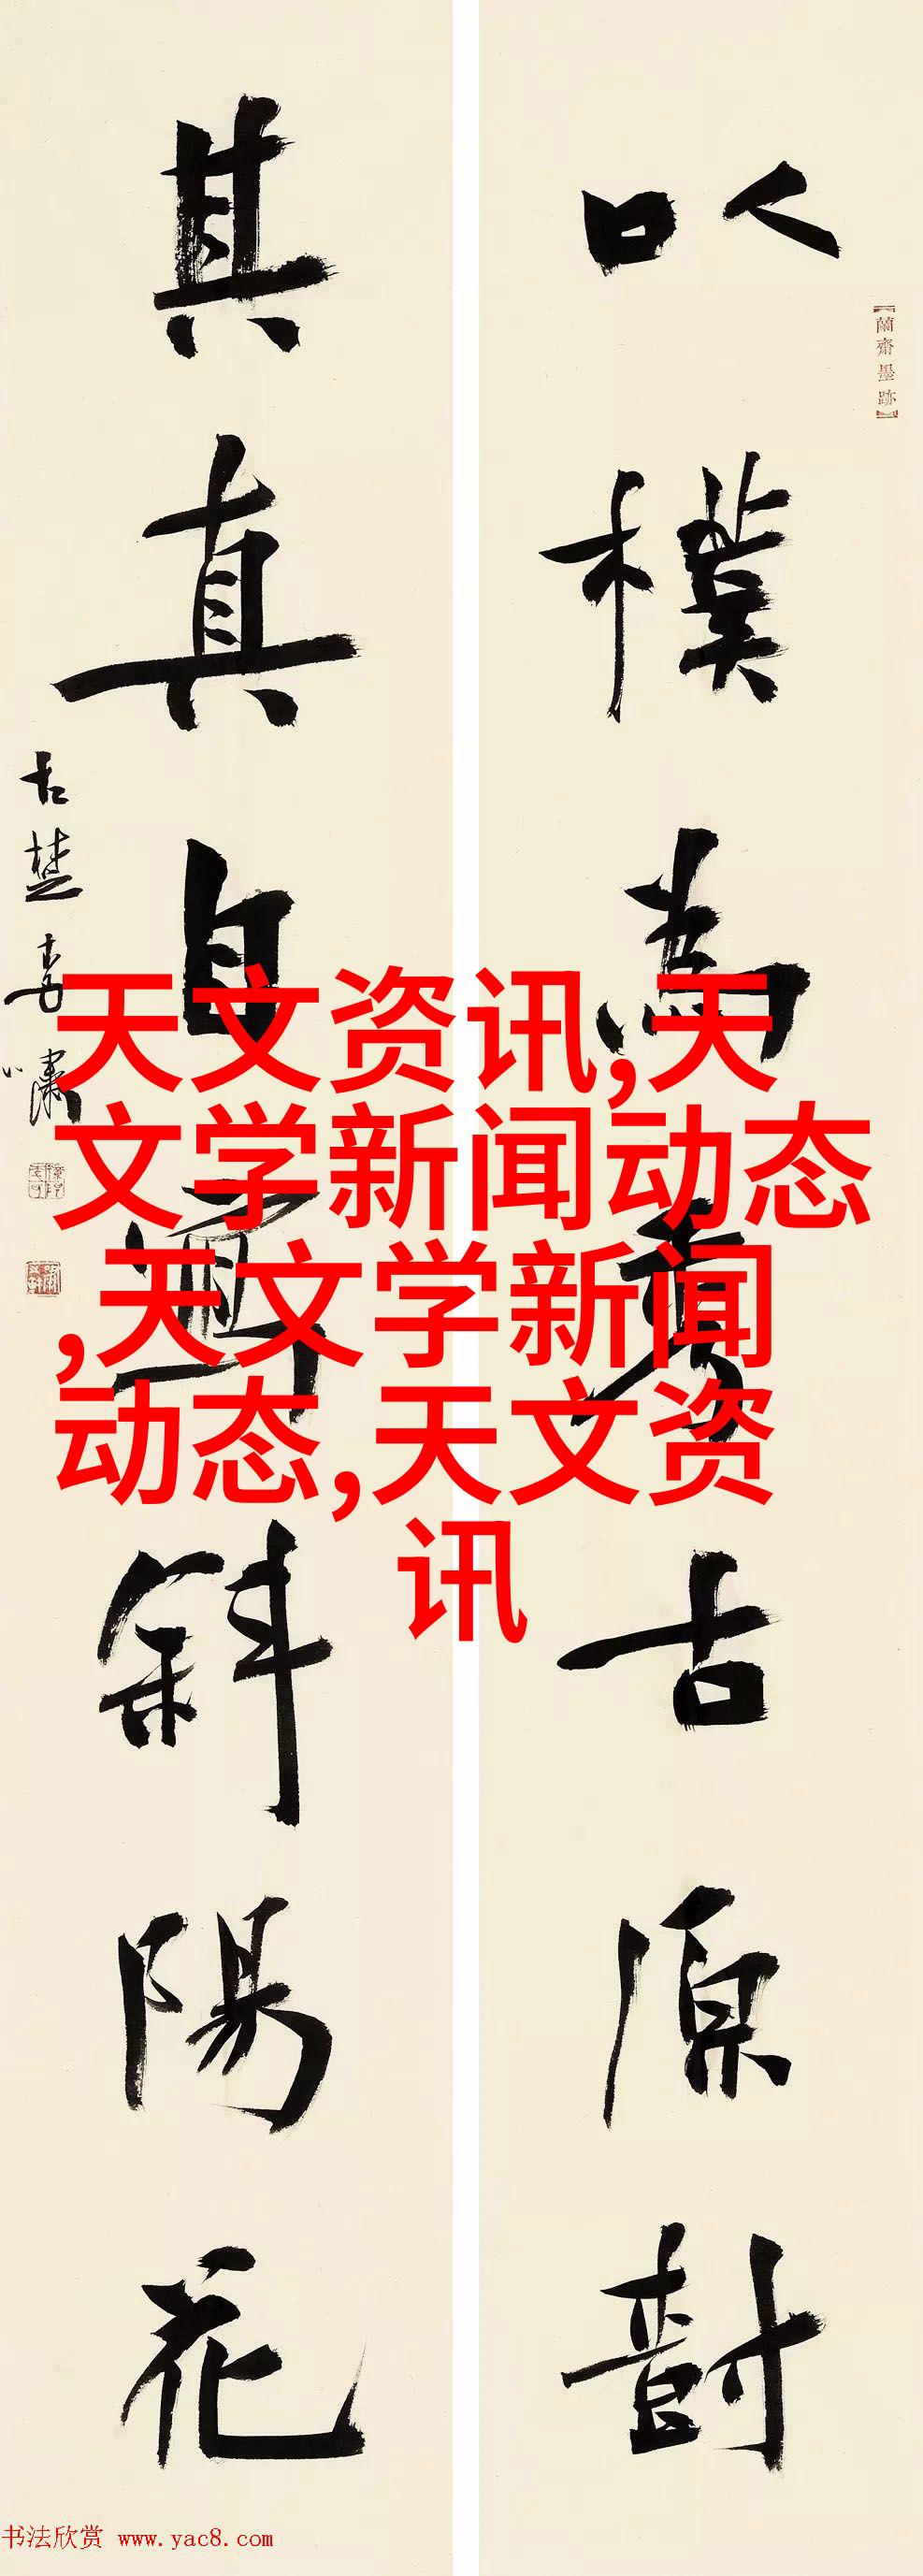 以樸為秀古原樹
其真自寫斜陽花
蘭齋墨跡
古楚李瀟
天文资讯,天
文学新闻动态
,天文学新闻
动态,天文资
讯
书法欣赏 www.yac8.com